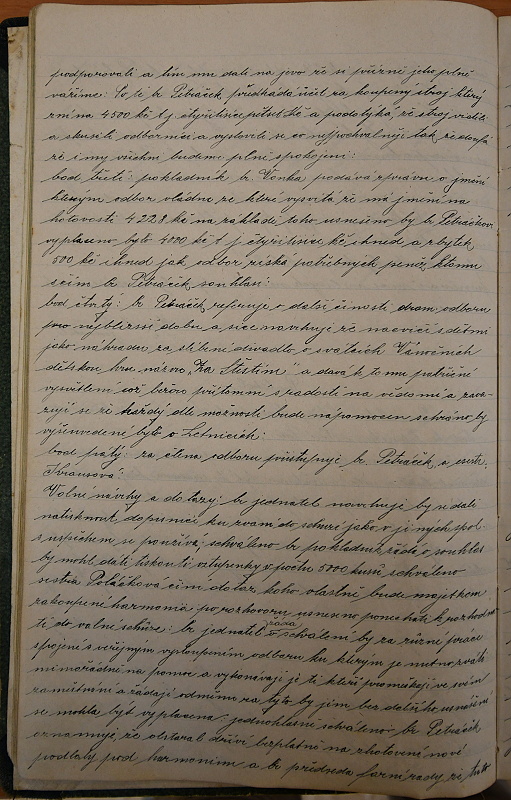 podporovali a tím mu dali na jevo že si přízně jeho plně
vážíme: Co te br. Petráček předkládá účet za koupený stroj který
zní na 4500 kč t j čtyřitisíce pětset Kč a podotýká, že stroj viděli
a zkusili odborníci a vyslovili se co nejpochvalněji tak, že doufá
že i my všichni budeme plni spokojeni:
bod třetí: pokladník br. Vonka podává zprávu o jmění
kterým odbor vládne ze které vysvítá že má jmění na
hotovosti 4228 kč na základě toho usneseno by br. Petráčkovi
vyplaceno bylo 4000 kč t j čtyřitisíce kč ihned a zbytek
500 kč ihned jak odbor získá potřebných peněz, k tomu
br. Petráček souhlasí:
bod čtvrtý: br Petráček referuje o další činosti dram. odboru
pro nejbližší dobu a sice navrhuje že nacvičí s dětmi
jako náhradu za slíbené divadlo o svátcích Vánočních
dětskou hru názvo „Za Štěstím" a dává k tomu patřičné
vysvětlení což berou přítomní s radostí na vědomí a zava-
zují se že každý dle možnosti bude nápomocen sehráno by
výšeuvedené bylo o Letnicích:
bod pátý: za člena odboru přistupuje br. Petráček a sestr.
Volné návrhy a dotazy: br jednatel navrhuje by si dali
natisknout dopisnice ku zvaní do schůzí jako v jiných spol.
s úspěchem se používá, schváleno br pokladník žádá o souhlas
by mohl dáti tisknouti vstupenky v počtu 5000 kusů schváleno
sestra Poláčková činí dotaz koho vlastně bude majetkem
zakoupené harmonia po rozhovoru usneseno ponechati k rozhodnu-
tí do valné schůze: br jednatel žádá o schválení by za různé práce
spojené s veřejným vystoupením odboru ku kterým je nutno zváti
mimořádně na pomoc a vykonávají je ti kteří promeškají ve svém
zaměstnání a žádají odměnu za tyto by jim bez dalšího usnešení
se mohla být vyplacena: jednohlasně schváleno: br. Petráček
oznamuje, že obstaral dříví bezplatně na zhotovení nové
podlahy pod harmonium a br předseda farní rady že tuto